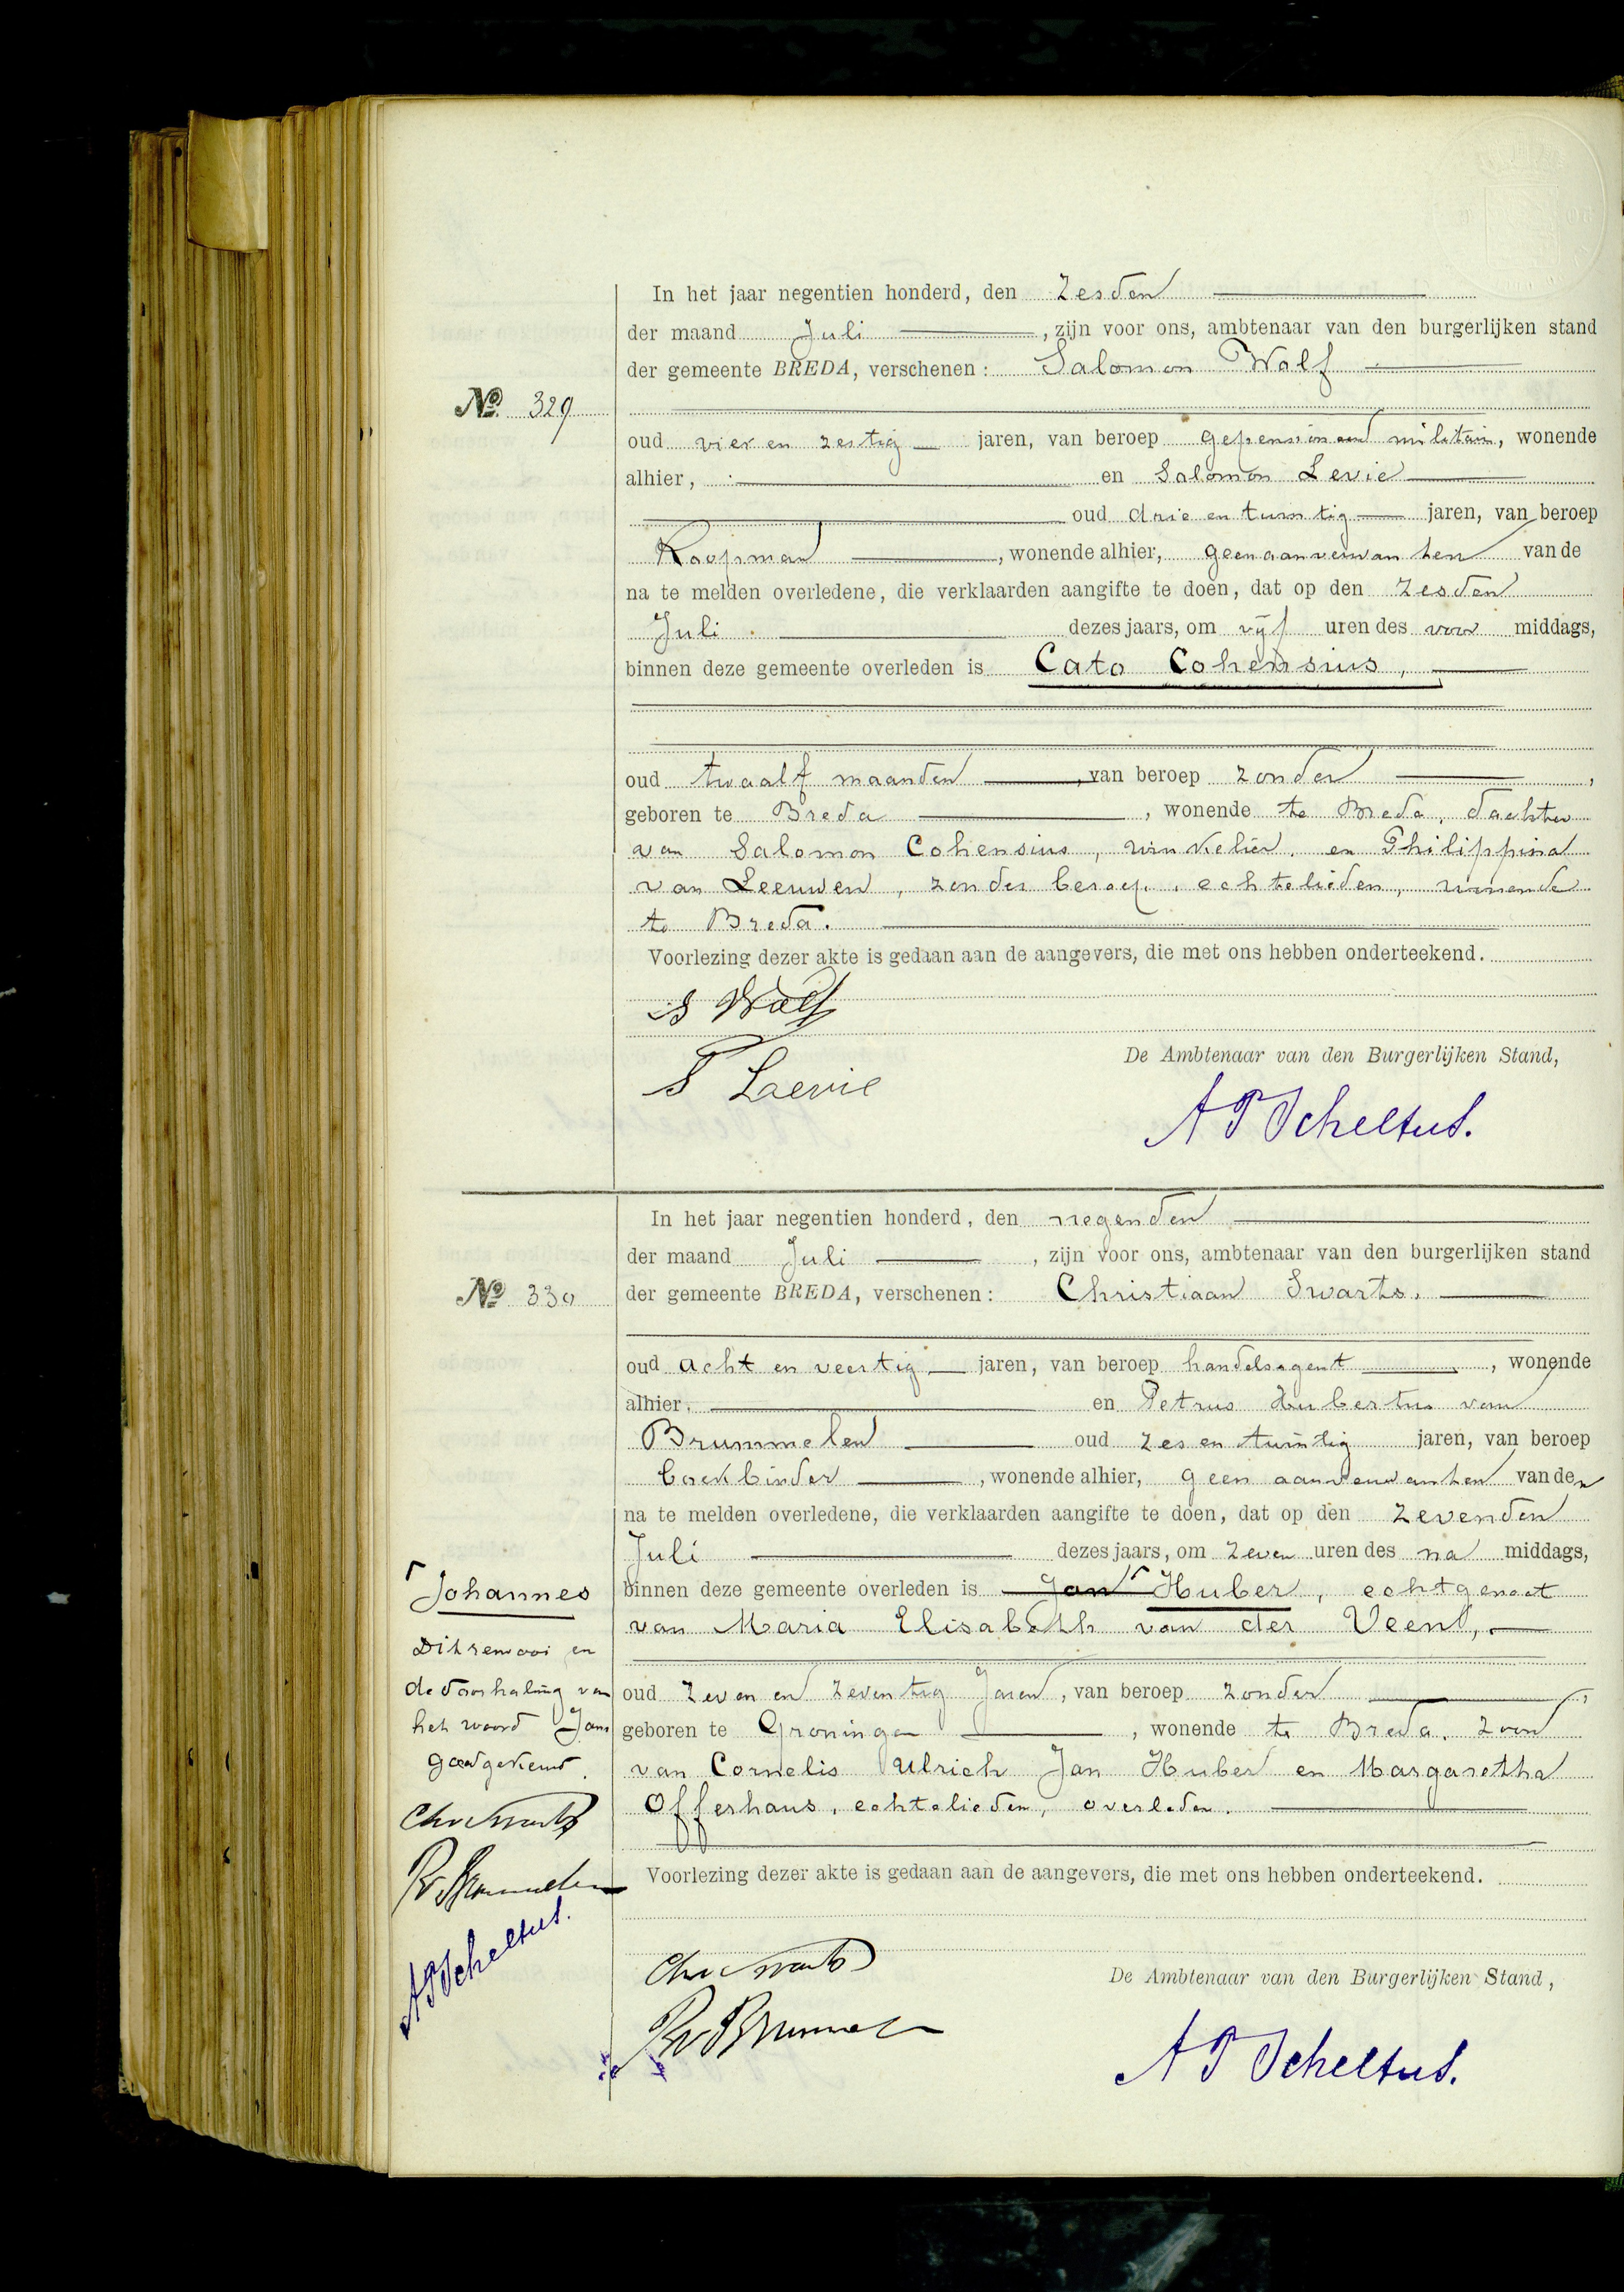 In het jaar negentien honderd, den Zesden
der maand Juli, zijn voor ons, ambtenaar van den burgerlijken stand
der gemeente BREDA, verschenen: Salomon Wolf
No. 329
oud vier en zestig jaren, van beroep gepensioneerd militair, wonende
alhier, en Salomon Levie
oud drie en twintig jaren, van beroep
Koopman, wonende alhier, geen aanverwanten van de
na te melden overledene, die verklaarden aangifte te doen, dat op den Zesden
Juli dezes jaars, om vijf uren des voor middags,
binnen deze gemeente overleden is Cato Cohensius,
oud twaalf maanden, van beroep zonder,
geboren te Breda, wonende te Breda, dochter
van Salomon Cohensius, winkelier, en Philippina
van Leeuwen, zonder beroep, echtelieden, wonende
te Breda.
Voorlezing dezer akte is gedaan aan de aangevers, die met ons hebben onderteekend.
S Wolf
De Ambtenaar van den Burgerlijken Stand,
S Laevie
A P Scheltus.
In het jaar negentien honderd, den negenden
der maand Juli, zijn voor ons, ambtenaar van den burgerlijken stand
No. 330 der gemeente BREDA, verschenen: Christiaan Swarts.
oud acht en veertig jaren, van beroep handelsagent, wonende
alhier. en Petrus Hubertus van
Brummelen oud zes en twintig jaren, van beroep
boekbinder, wonende alhier, geen aanverwanten van den
na te melden overledene, die verklaarden aangifte te doen, dat op den Zevenden
Juli dezes jaars, om zeven uren des na middags,
binnen deze gemeente overleden is Jan Huber, echtgenoot
van Maria Elisabeth van der Veen,
oud zeven en zeventig Jaren, van beroep zonder,
geboren te Groningen, wonende te Breda. zoon
van Cornelis Ulrich Jan Huber en Margaretha
Offerhaus, echtelieden, overleden.
Voorlezing dezer akte is gedaan aan de aangevers, die met ons hebben onderteekend.
Johannes
Dit renvooi en
de doorhaling van
het woord Jan
goedgekeurd.
Chr Swarts
P v Brummelen
A P Scheltus.
Chr Swarts
De Ambtenaar van den Burgerlijken Stand,
P v Brummelen
A P Scheltus.